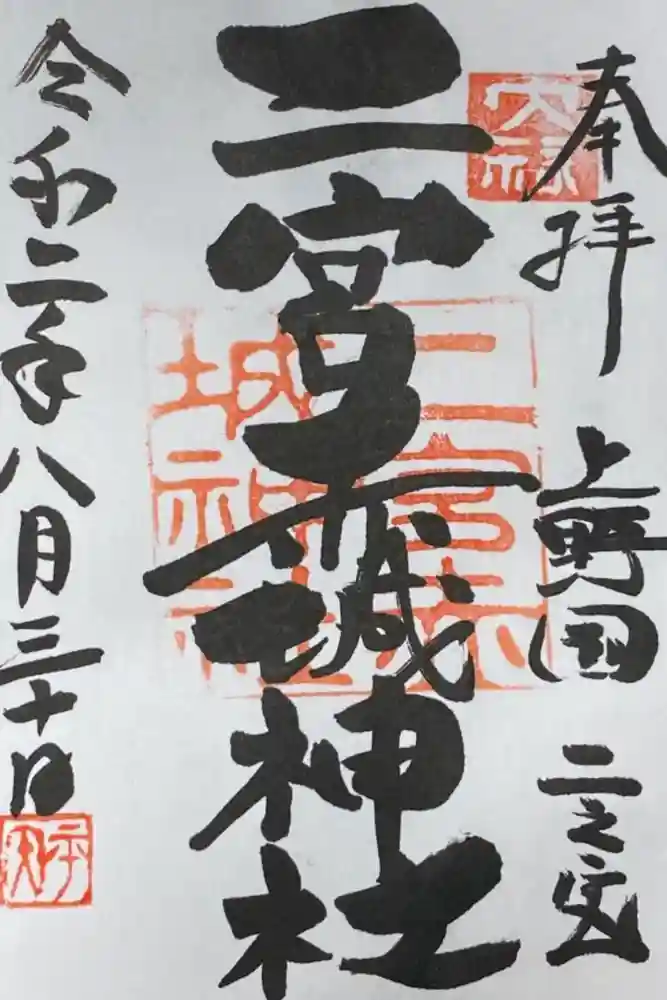 奉拝
上野国 二之宮
二宮赤城神社
二宮赤城神社
令和二年八月三十日